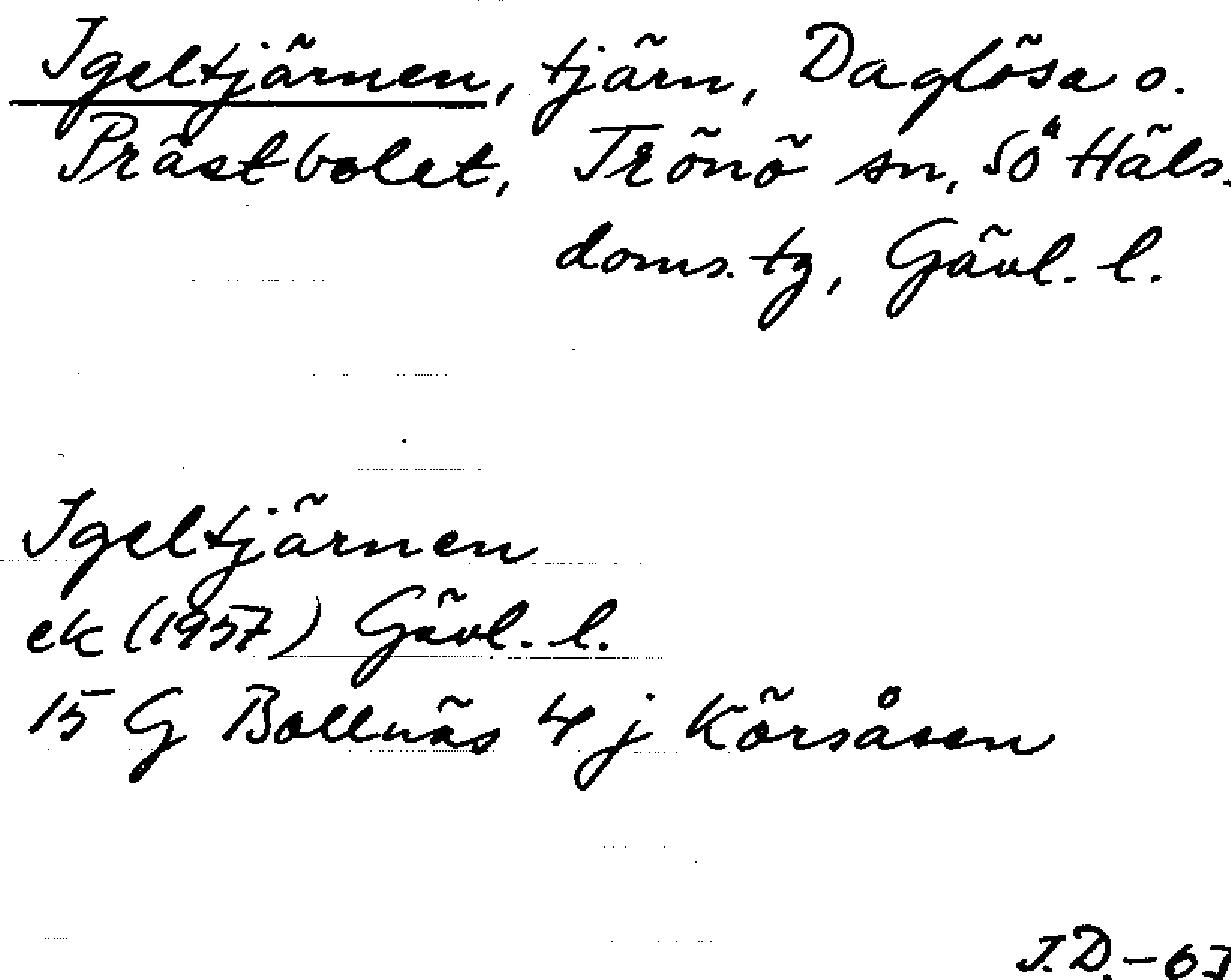 Igeltjärnen, tjärn, Daglösa o.
Prästbolet, Trönö sn, Sö Häls.
doms.tg, Gävl. l.
Igeltjärnen
ek (1957) Gävl. l.
15 G Bollnäs 4 j Körsåsen
J.D.-67